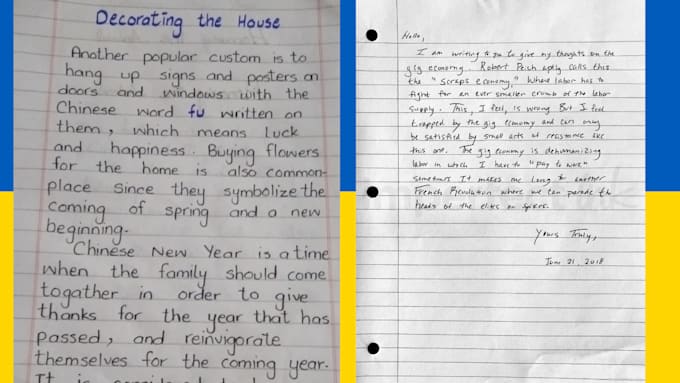 Decorating the House
Another popular custom is to
hang up signs and posters on
doors and windows with the
Chinese word fu written on
them, which means luck
and happiness. Buying flowers
for the home is also common-
place since they symbolize the
coming of spring and a new
beginning.
Chinese New Year is a time
when the family should come
together in order to give
thanks for the year that has
passed, and reinvigorate
themselves for the coming year.
Hello,
I am writing to you to give my thoughts on the
gig economy. Robert Reich aptly calls this
the "scraps economy," where labor has to
fight for an ever smaller crumb of the labor
supply. This, I feel, is wrong. But I feel
trapped by the gig economy and can only
be satisfied by small acts of resistance like
this one. The gig economy is dehumanizing
labor in which I have to "pay to work"
sometimes. It makes me long for another
French Revolution where we can parade the
heads of the elites on spikes.
Yours Truly,
June 21, 2018